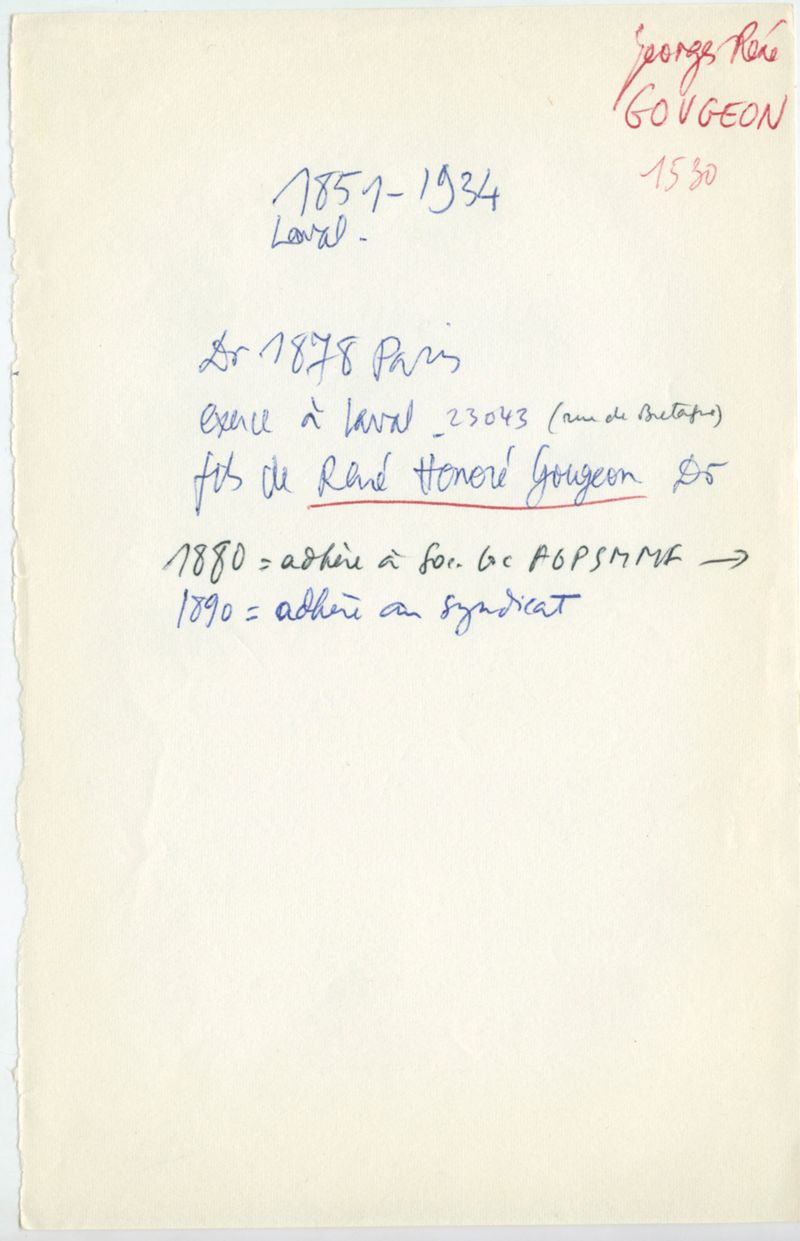 Georges René
GOUGEON
1530
1851-1934
Laval.
Dr 1878 Paris
exerce à Laval - 23043 (rue de Bretagne)
fils de René Honoré Gougeon Dr
1880 = adhère à Soc. AGPSMMF →
1890 = adhère au syndicat